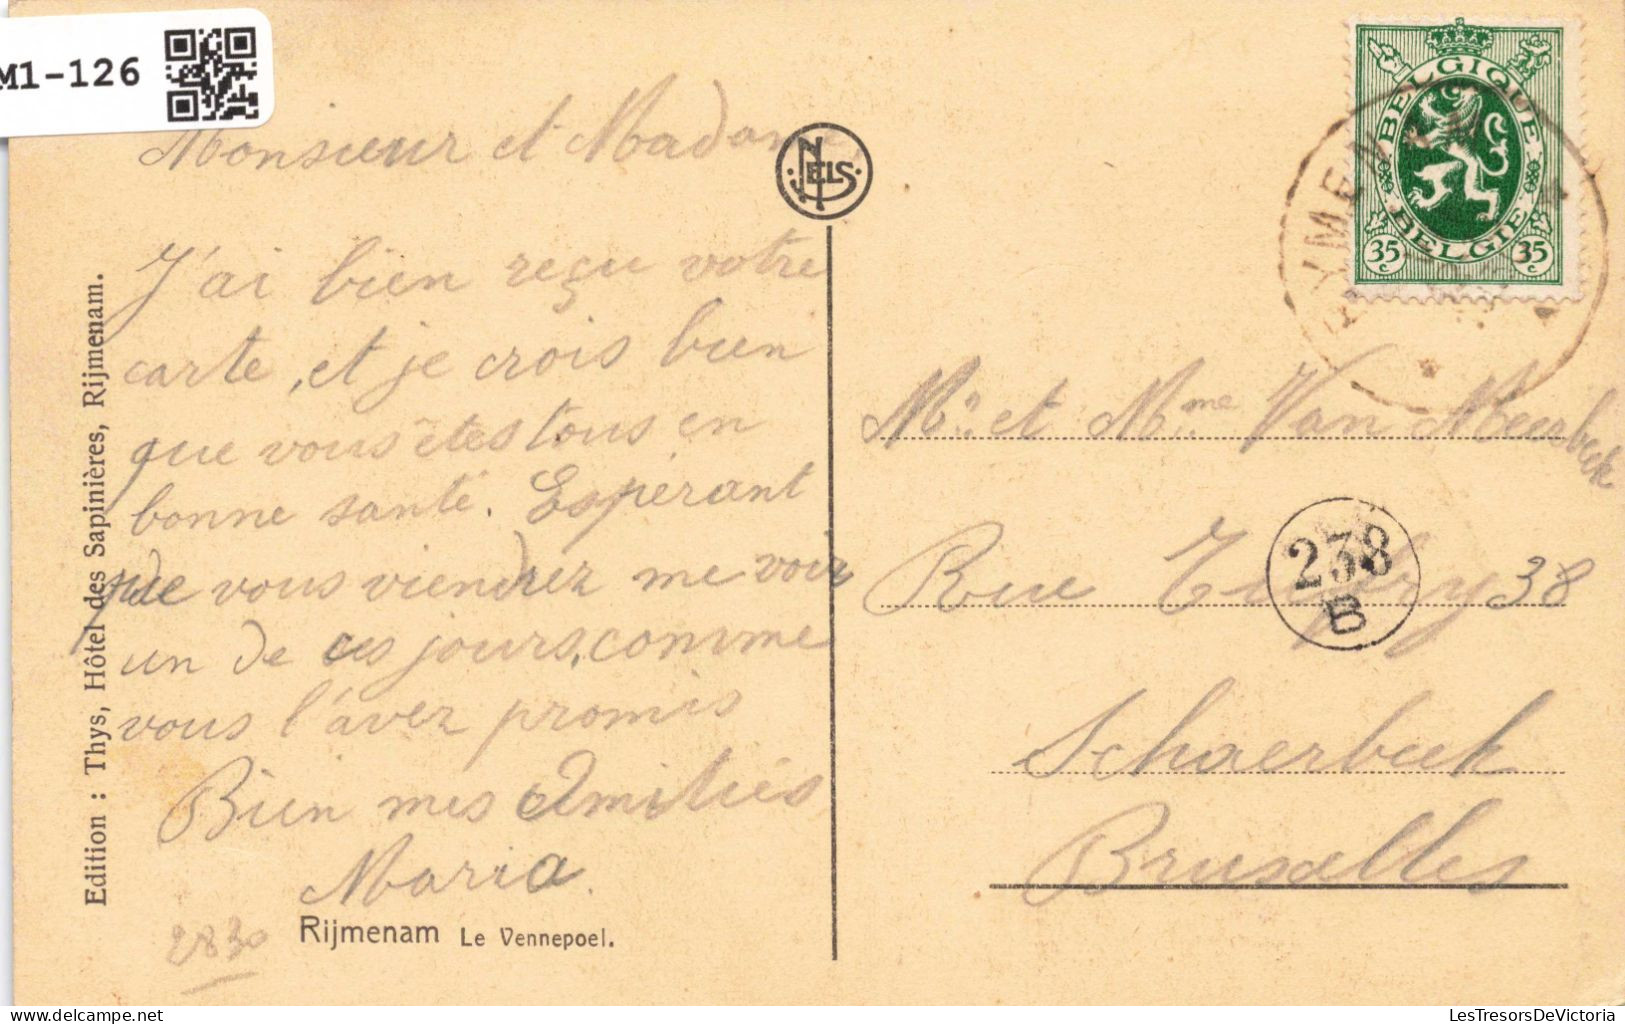 M1-126
Monsieur et Madame
NELS
J'ai bien reçu votre
carte, et je crois bien
que vous êtes tous en
bonne santé. Espérant
que vous viendrez me voir
un de ces jours, comme
vous l'avez promis
Bien mes Amitiés
Maria.
2830
Rijmenam Le Vennepoel.
Edition : Thys, Hôtel des Sapinières, Rijmenam.
BELGIQUE
BELGIE
35c 35c
Mr. et Mme Van Meerbeek
238
B
Rue 38
Schaerbeek
Bruxelles
LesTresorsDeVictoria
delcampe.net